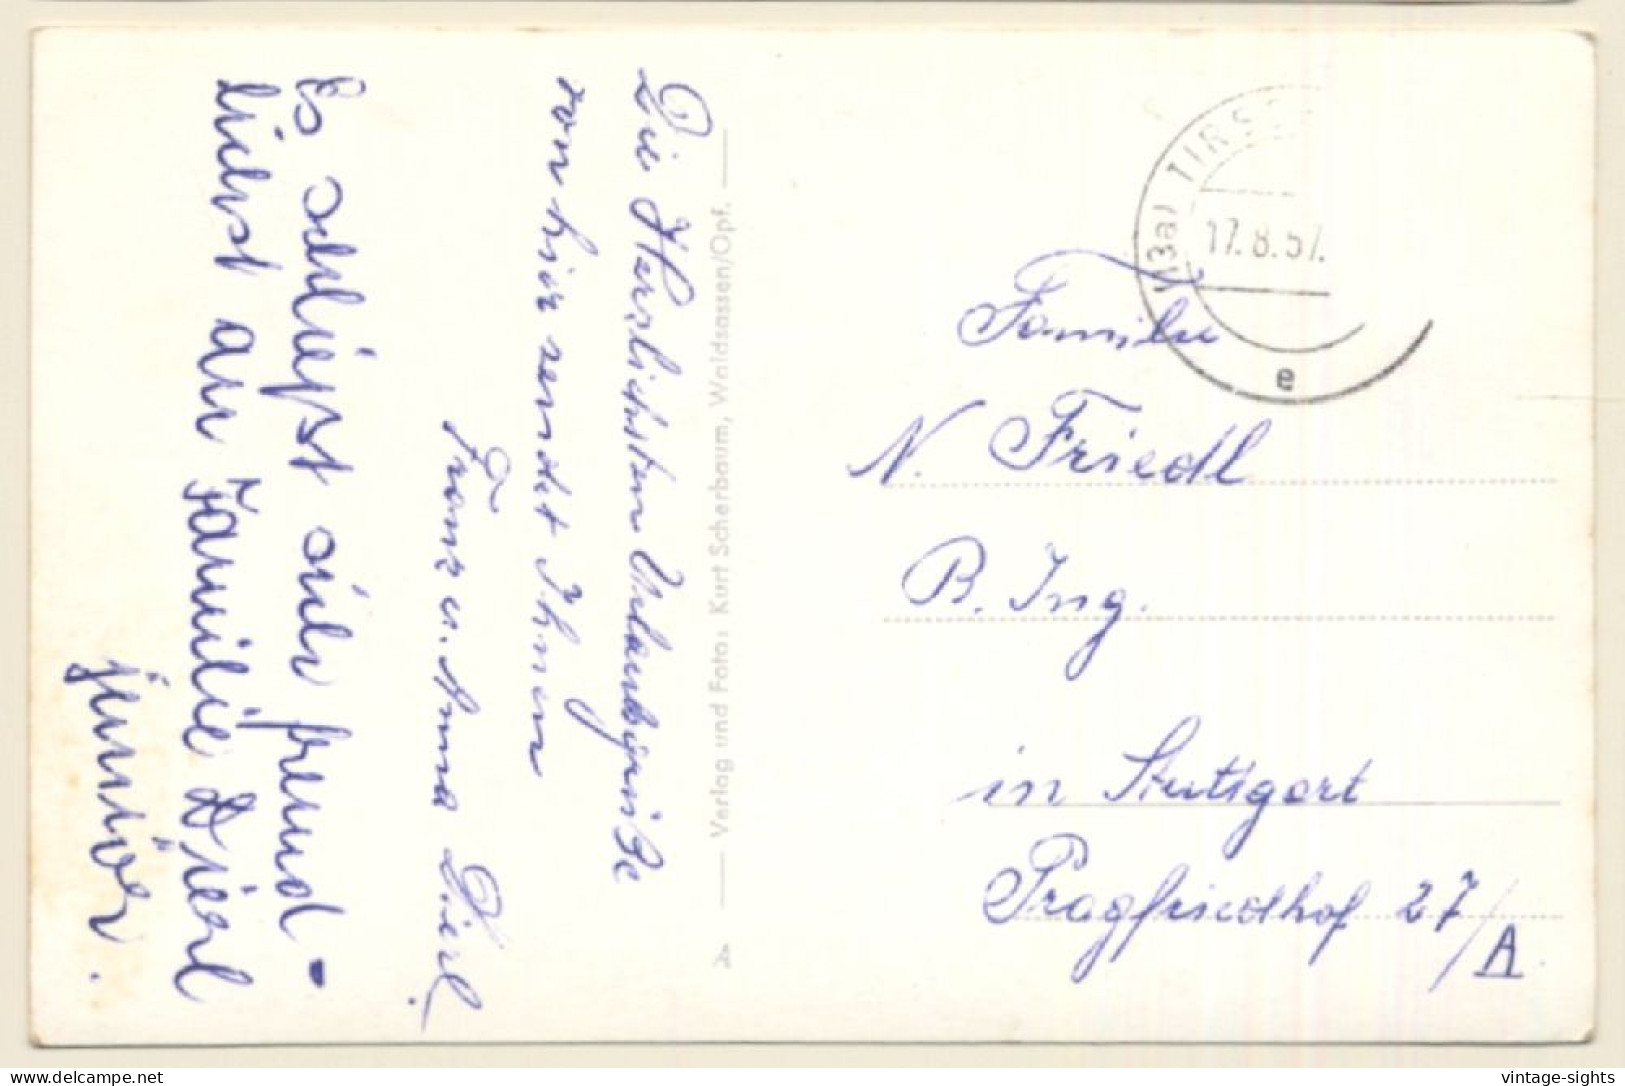 Die Herzlichsten Urlaubsgrüße
von hier sendet Ihnen
Franz u. Anna Dierl.
Es schließt sich freund-
lichst an Familie Dierl
junior.
Verlag und Foto: Kurt Scherbaum, Waldsassen/Opf.
(13a) TIRSC
17.8.57.
e
Familie
N. Friedl
B. Ing.
in Stuttgart
Pragfriedhof 27/A
delcampe.net
vintage-sights